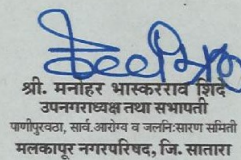 श्री. मनोहर भास्करराव शिंदे
उपनगराध्यक्ष तथा सभापती
पाणीपुरवठा, सार्व.आरोग्य व जलनि:सारण समिती
मलकापूर नगरपरिषद, जि. सातारा